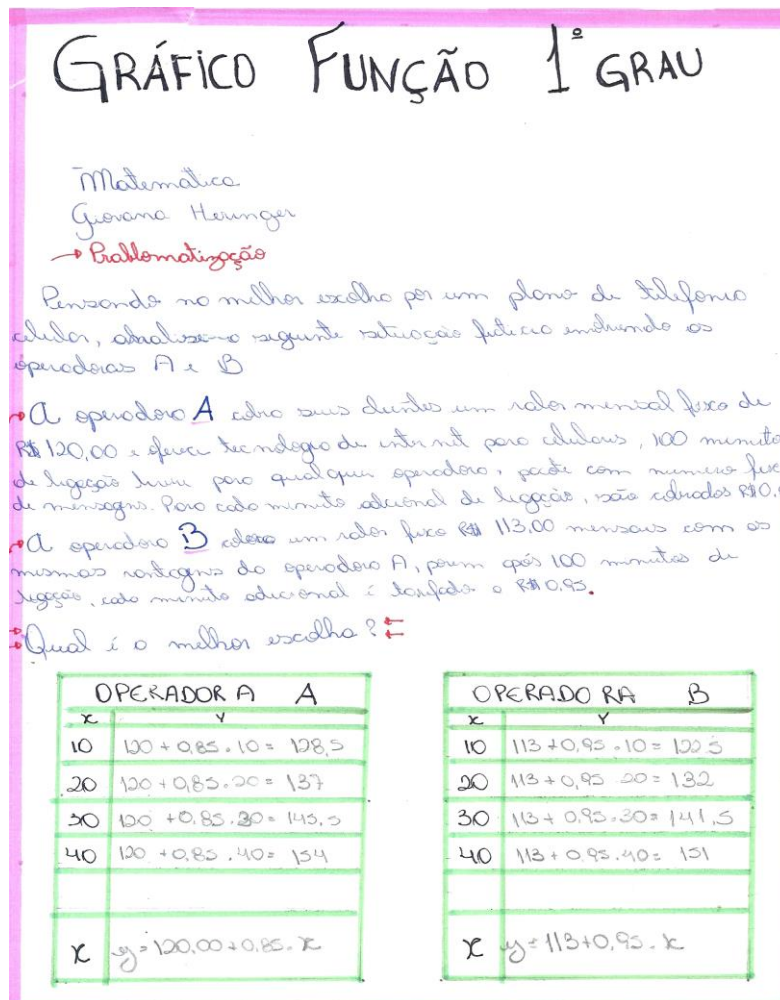 GRÁFICO FUNÇÃO 1º GRAU
Matemática
Giovana Heringer
→ Problematização
Pensando no melhor escolha por um plano de telefonia
celular, analise a seguinte situação fictícia envolvendo as
operadoras A e B
A operadora A cobra seus clientes um valor mensal fixo de
R$ 120,00 e oferece tecnologia de internet para celulares, 100 minutos
de ligação livre para qualquer operadora, pacote com numero fixo
de mensagens. Para cada minuto adicional de ligação, são cobrados R$0,
A operadora B cobra um valor fixo R$ 113.00 mensais com as
mesmas vantagens da operadora A, porem após 100 minutos de
ligação, cada minuto adicional é tarifado a R$ 0,95.
Qual é a melhor escolha?
OPERADORA A
x Y
10 120 + 0,85 . 10 = 128,5
20 120 + 0,85 . 20 = 137
30 120 + 0,85 . 30 = 145,5
40 120 + 0,85 . 40 = 154
x y = 120,00 + 0,85 . x
OPERADORA B
x Y
10 113 + 0,95 . 10 = 122,5
20 113 + 0,95 20 = 132
30 113 + 0,95 . 30 = 141,5
40 113 + 0,95 . 40 = 151
x y = 113 + 0,95 . x